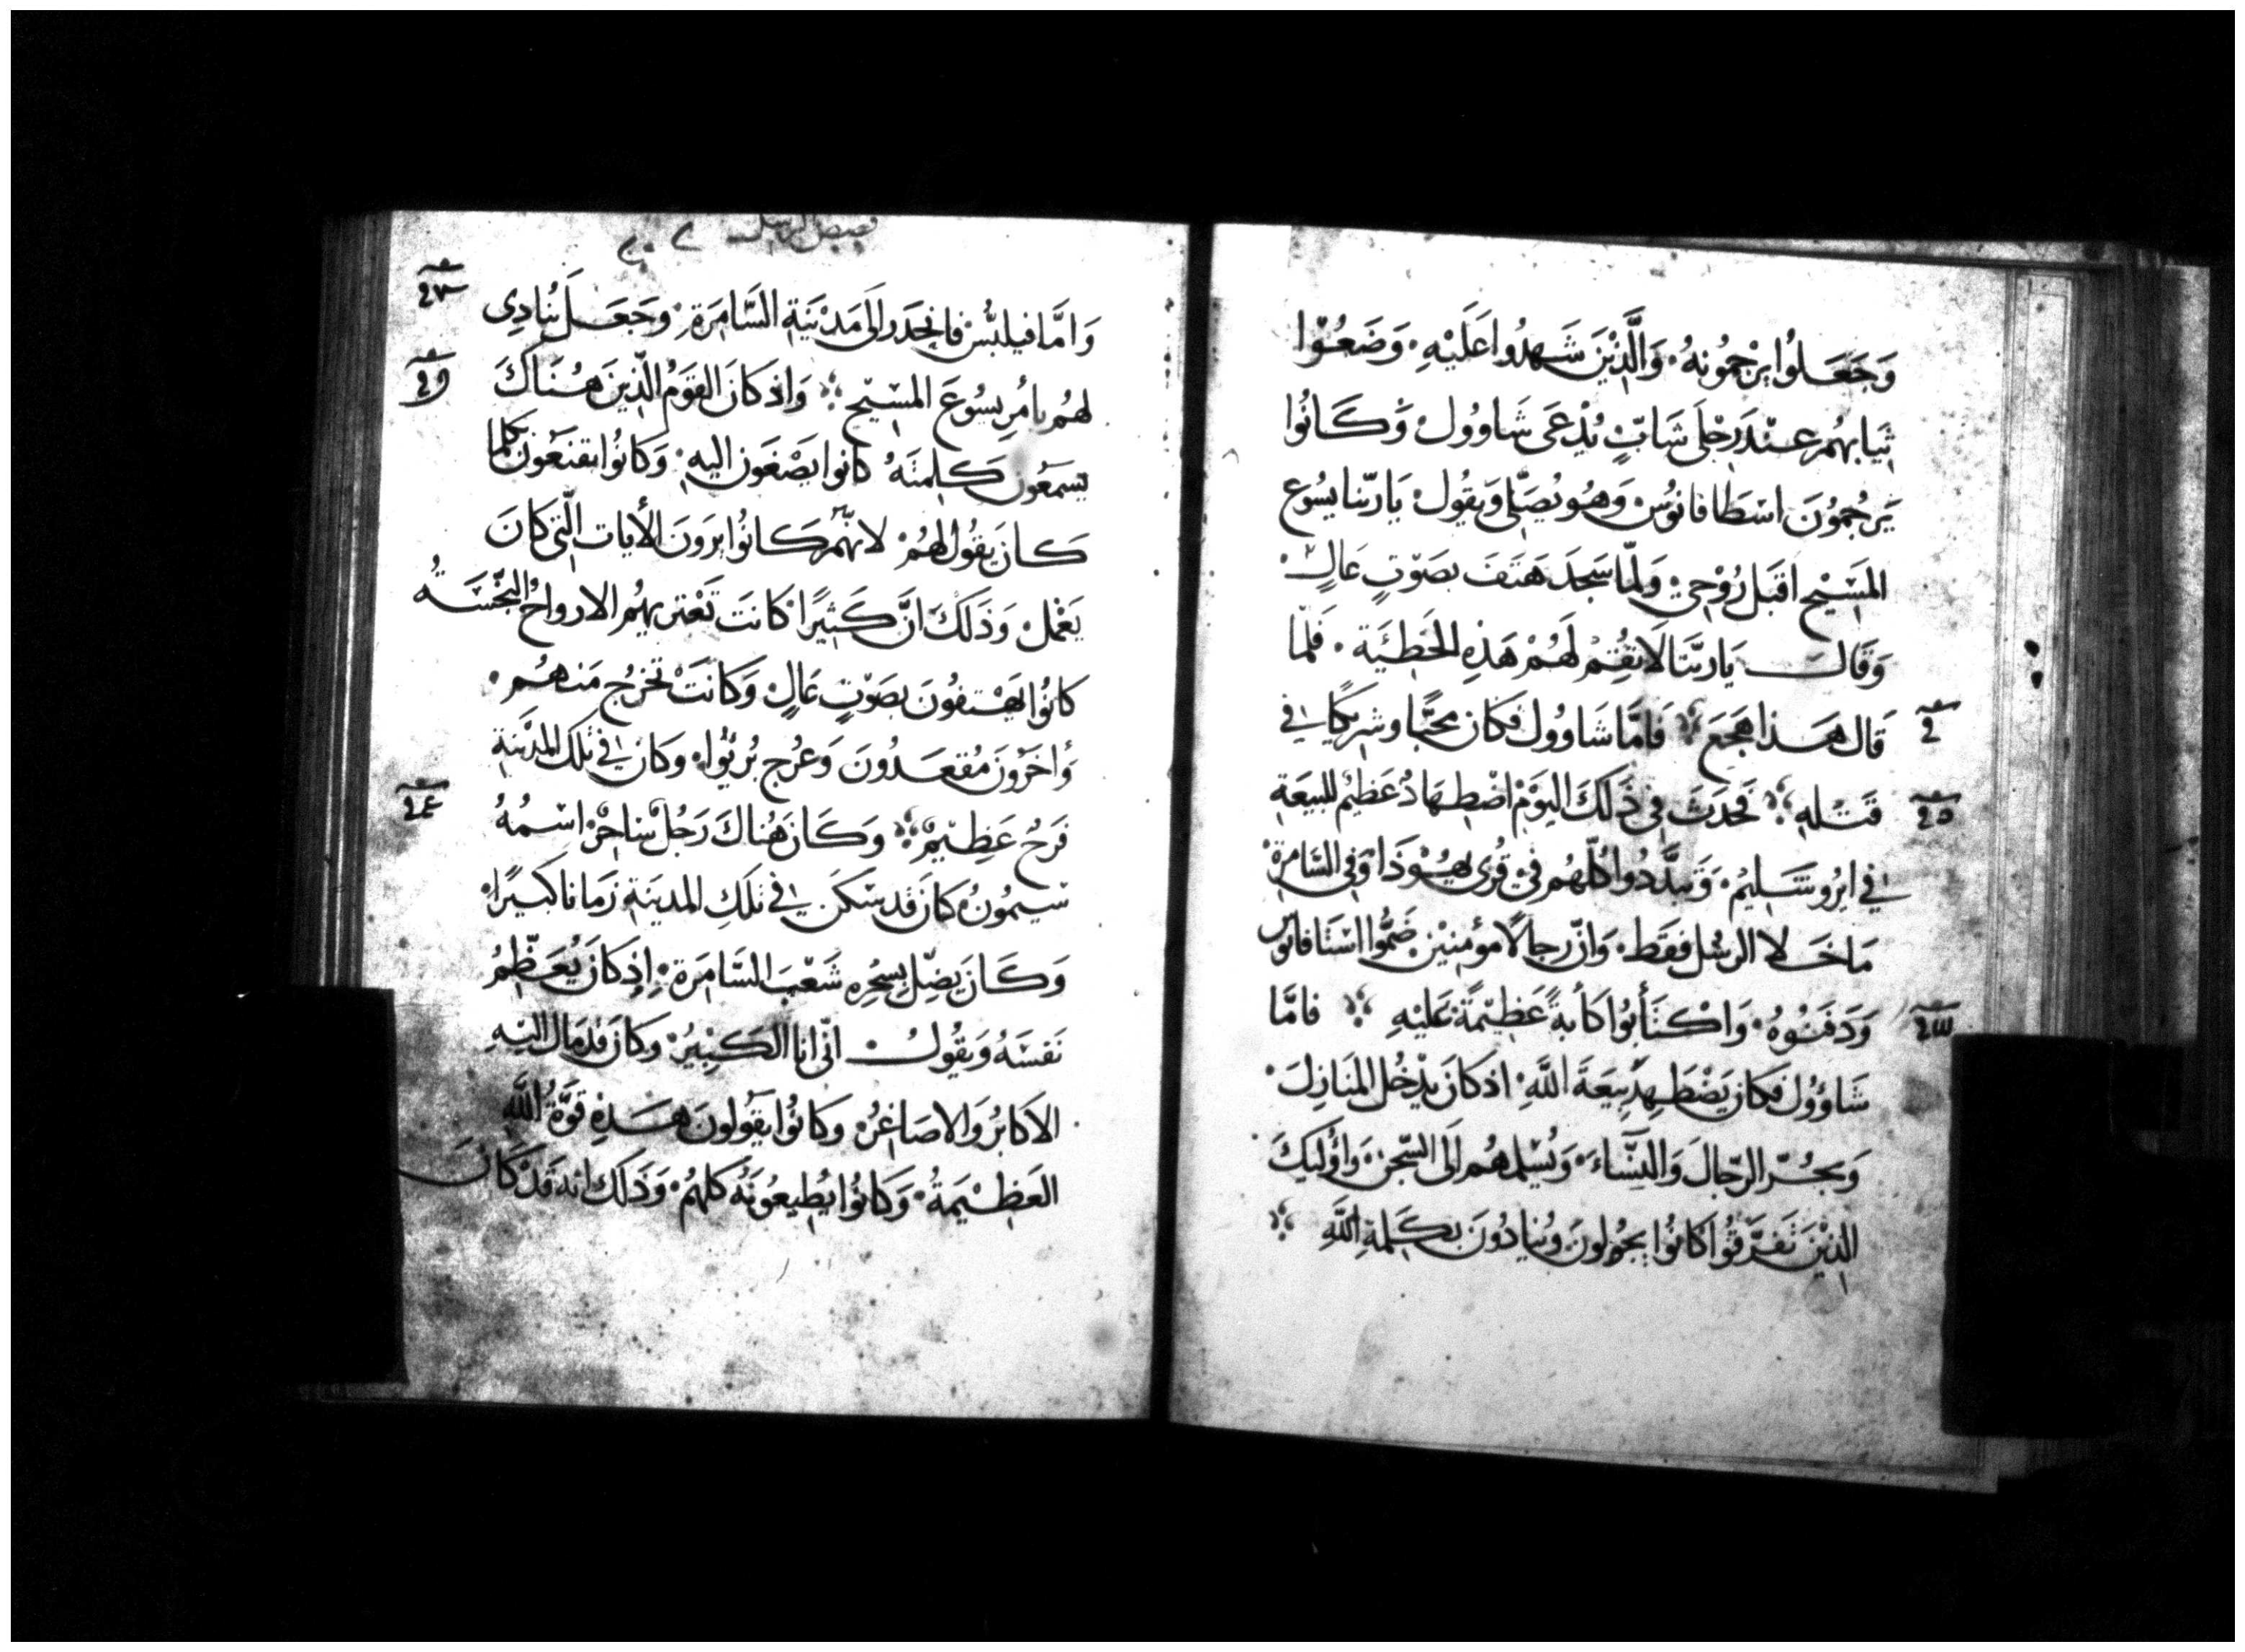 وَجَعَلُوا يَرْجُمُونهُ. وَالَّذِيْنَ شَهِدُوا عَلَيْهِ. وَضَعُوْا
ثِيَابهُم عنْدَ رِجْلَى شَابٍّ يُدْعَى شَاوُولْ وَكَانُوا
يَرجُمُوْنَ اسْطَافَانوُسْ وَهُو يُصَلّى وَيقُولْ يَا رَبّنا يسُوع
المسَيْح اقبَل رُوْحِيْ وَلمّا سَجَدَ هَتَفَ بصَوْتٍ عَالٍ
وَقَالَ يَا ربَّنَا لَا تقُمْ لَهُمْ هَذِهِ الخَطيَة. فَلمّا
قَال هَذا هَجَعَ فَامَّا شَاوُول فَكَان مُحبًّا وشرِيكًا في
قَتْلهِ فَحدَثَ فِى ذَلكَ اليَوْمْ اضْطِهَادٌ عَظيْم للبيعَةِ
في ايرُوشَليمُ. وَتبدَّدُوا كُلّهُم في قُرى يهُوْذَا وَفِى السَّامِرَةْ
مَا خَلا الرسُل فقَط. وَانّ رجالًا مؤمِنيْن ضَمُّوا اسْتَافانوس
وَدَفنُوْهُ. وَاكْتَأَبُوا كَأبةً عَظِيْمَةً عَليْهِ فامَّا
شَاؤُول فَكَان يَضْطَهِدُ بِيعَةَ اللَّهِ. اذ كَانَ يدْخُل المنَازلَ.
وَيجُرّ الرّجَالَ وَالنِّسَاءَ. وَيُسْلمهُم الَى السِّجْن. وَاوُليكَ
الذِيْنَ تَفَرَّقُوا كَانُوا يجُولونَ وَيُنادُونَ بكَلِمةِ اللَّهِ
قصص الرسل
وَامَّا فيلبُّسْ فانحدَر الَى مَدْيَنةِ السَّامَرَةِ. وَجَعَل يُنادِى
لهُم بأمرِ يسُوعَ المسْيْح وَاذ كانَ القومُ الّذِينَ هُنَاكَ
يَسمَعُون كَلِمتَهُ كانوا يصْغَون اليهِ. وَكانُوا يقنَعُونَ بكلما
كَانَ يقُول لهُمْ. لانهّمْ كَانُوا يرَونَ الأيات الّتى كانَ
يَعْمَلْ. وَذَلَكَ انَّ كَثيرًا كانَت تَعْتريهُم الارواحُ النّجْسَةُ
كانُوا يَهْتفُونَ بصَوْتٍ عَالٍ وَكانَتْ تخرُج مَنهُم.
وَاخَرُونَ مُقعَدُونَ وَعُرج بُريُوا. وَكان في تلكَ المدَيْنةِ
فَرَحُ عَظيْمْ وَكَانَ هُناكَ رَجُل سَاحِرْ اسْمُهُ
سيْمُونْ كانَ قد سَكَنَ في تلكِ المدينَةِ زَمانا كبَيرًا.
وَكَانَ يَضِلّ بِسحْرِهِ شَعْبَ السَّامَرَة. اذ كانَ يُعَظّمُ
نَفسَهُ وَيقُولُ انّى انا الكَبْيرُ. وكانَ قد مَال اليْهِ
الاكابُر وَالاصَاغرُ. وكانُوا يقُولونَ هَذِهِ قوَّةُ اللَّهِ
العَظيْمَةُ. وَكانُوا يُطيعُونَهُ كلهُمْ. وَذَلَكَ انهُ قَدْ كانَ